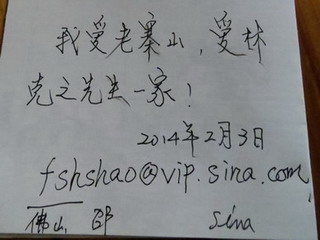 我爱老寨山，爱林
克之先生一家！
2014年2月3日
fshshao@vip.sina.com
佛山 邵 sina